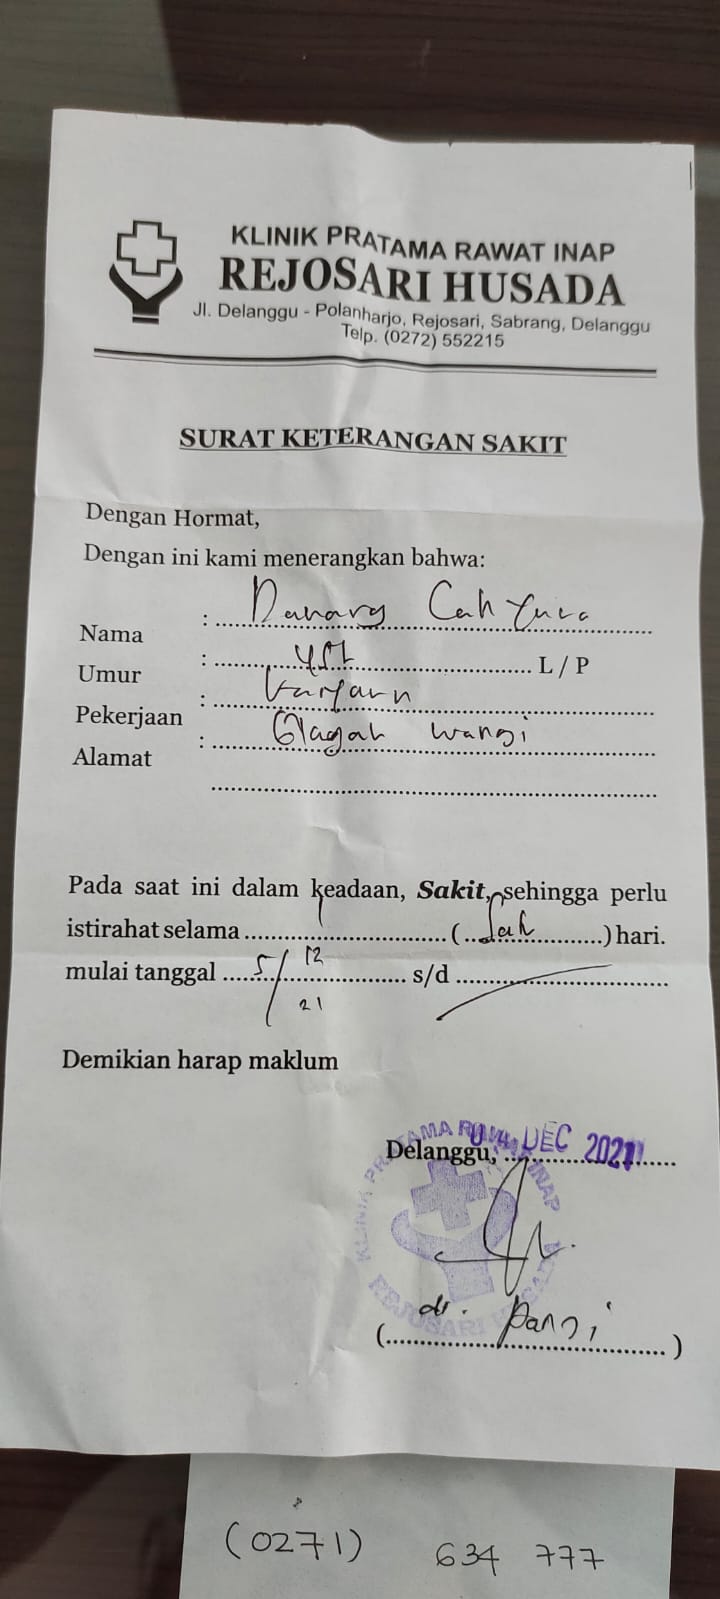 KLINIK PRATAMA RAWAT INAP
REJOSARI HUSADA
Jl. Delanggu - Polanharjo, Rejosari, Sabrang, Delanggu
Telp. (0272) 552215
SURAT KETERANGAN SAKIT
Dengan Hormat,
Dengan ini kami menerangkan bahwa:
Nama : Danang
Umur : L / P
Pekerjaan :
Alamat : Glagah wangi
Pada saat ini dalam keadaan, Sakit, sehingga perlu
istirahat selama ( ) hari.
mulai tanggal 5/12 21 s/d
Demikian harap maklum
Delanggu, 04 DEC 2021
KLINIK PRATAMA RAWAT INAP
REJOSARI HUSADA
(dr. )
(0271) 634 777